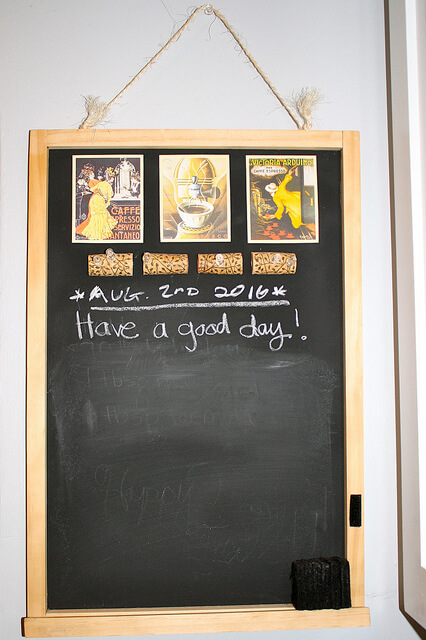 CAFFE
ESPRESSO
SERVIZIO
ISTANTANEO
VICTORIA ARDUINO
CAFFE ESPRESSO
*AUG. 2ND 2016*
Have a good day!
Happy